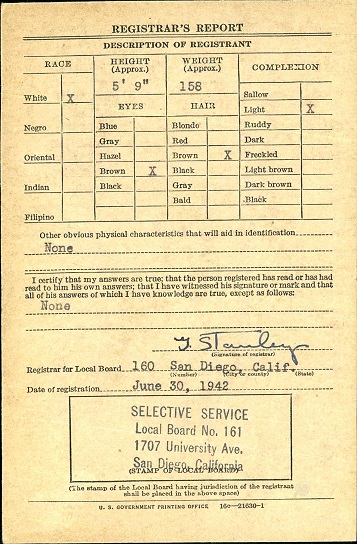 REGISTRAR'S REPORT
DESCRIPTION OF REGISTRANT
RACE
HEIGHT (Approx.)
WEIGHT (Approx.)
COMPLEXION
5' 9"
158
White X
EYES
HAIR
Sallow
Light X
Negro
Blue
Blonde
Ruddy
Gray
Red
Dark
Oriental
Hazel
Brown X
Freckled
Brown X
Black
Light brown
Indian
Black
Gray
Dark brown
Bald
Black
Filipino
Other obvious physical characteristics that will aid in identification
None
I certify that my answers are true; that the person registered has read or has had
read to him his own answers; that I have witnessed his signature or mark and that
all of his answers of which I have knowledge are true, except as follows:
None
Stanley
(Signature of registrar)
Registrar for Local Board 160 San Diego, Calif.
(Number) (City or county) (State)
Date of registration June 30, 1942
SELECTIVE SERVICE
Local Board No. 161
1707 University Ave.
San Diego, California
(STAMP OF LOCAL BOARD)
(The stamp of the Local Board having jurisdiction of the registrant
shall be placed in the above space)
U. S. GOVERNMENT PRINTING OFFICE 16—21630-1